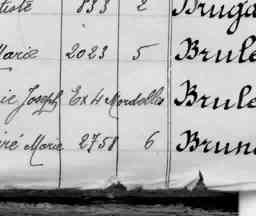 tiste 833 2 Bruga
Marie 2023 5 Brule
ie Joseph Ex 4 Mordelles Brule
iré Marie 2758 6 Brun